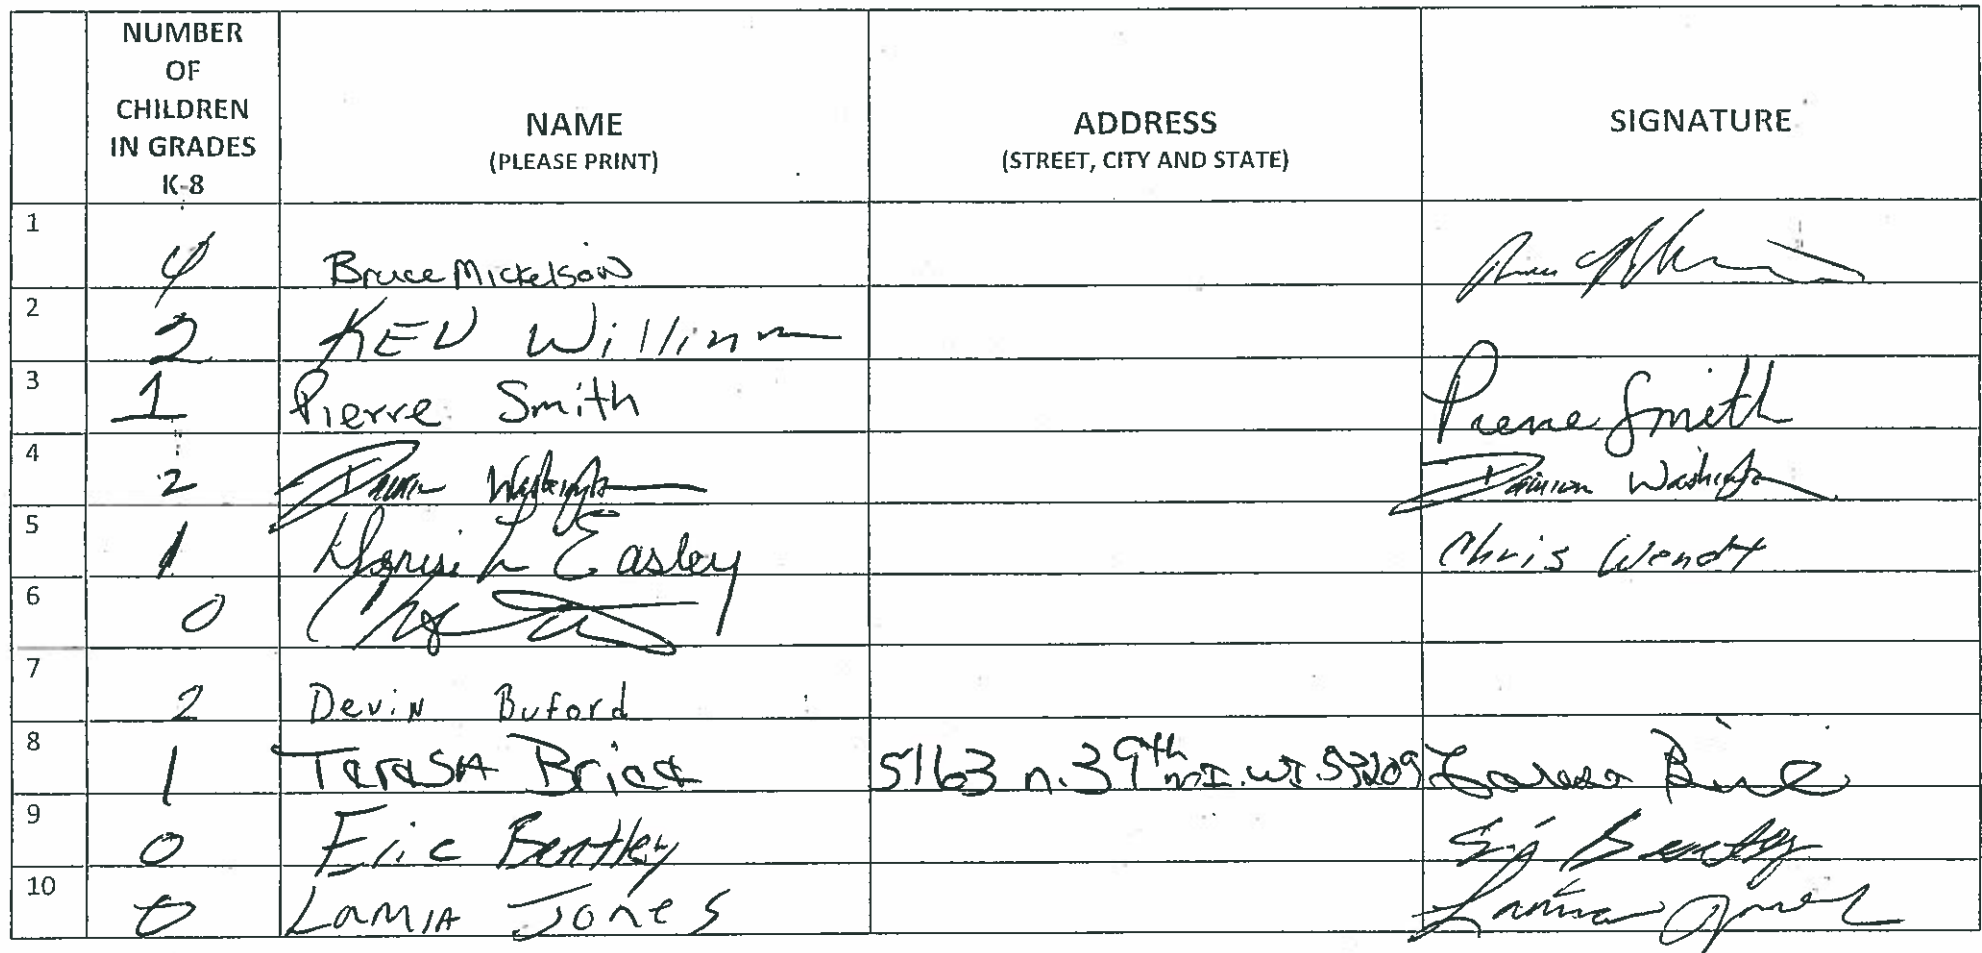 NUMBER OF CHILDREN IN GRADES K-8
NAME (PLEASE PRINT)
ADDRESS (STREET, CITY AND STATE)
SIGNATURE
1 4 Bruce Mickelson
2 2 KEN
3 1 Pierre Smith Pierre Smith
4 2 Damion Washington
5 1 Easley Chris Wendt
6 0
7 2 Devin Buford
8 1 TerESA Brice 5163 n. 39th mI. WI. 53209
9 0 Eric Bentley Bentley
10 0 LaMIA JONES Lamia Jones